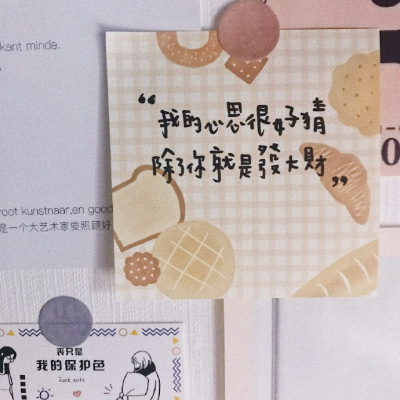 kant minde.
“我的心思很好猜
除了你就是發大財”
root kunstnaar,en good
是一个大艺术家要照顾好
丧只是
我的保护色
Just soft